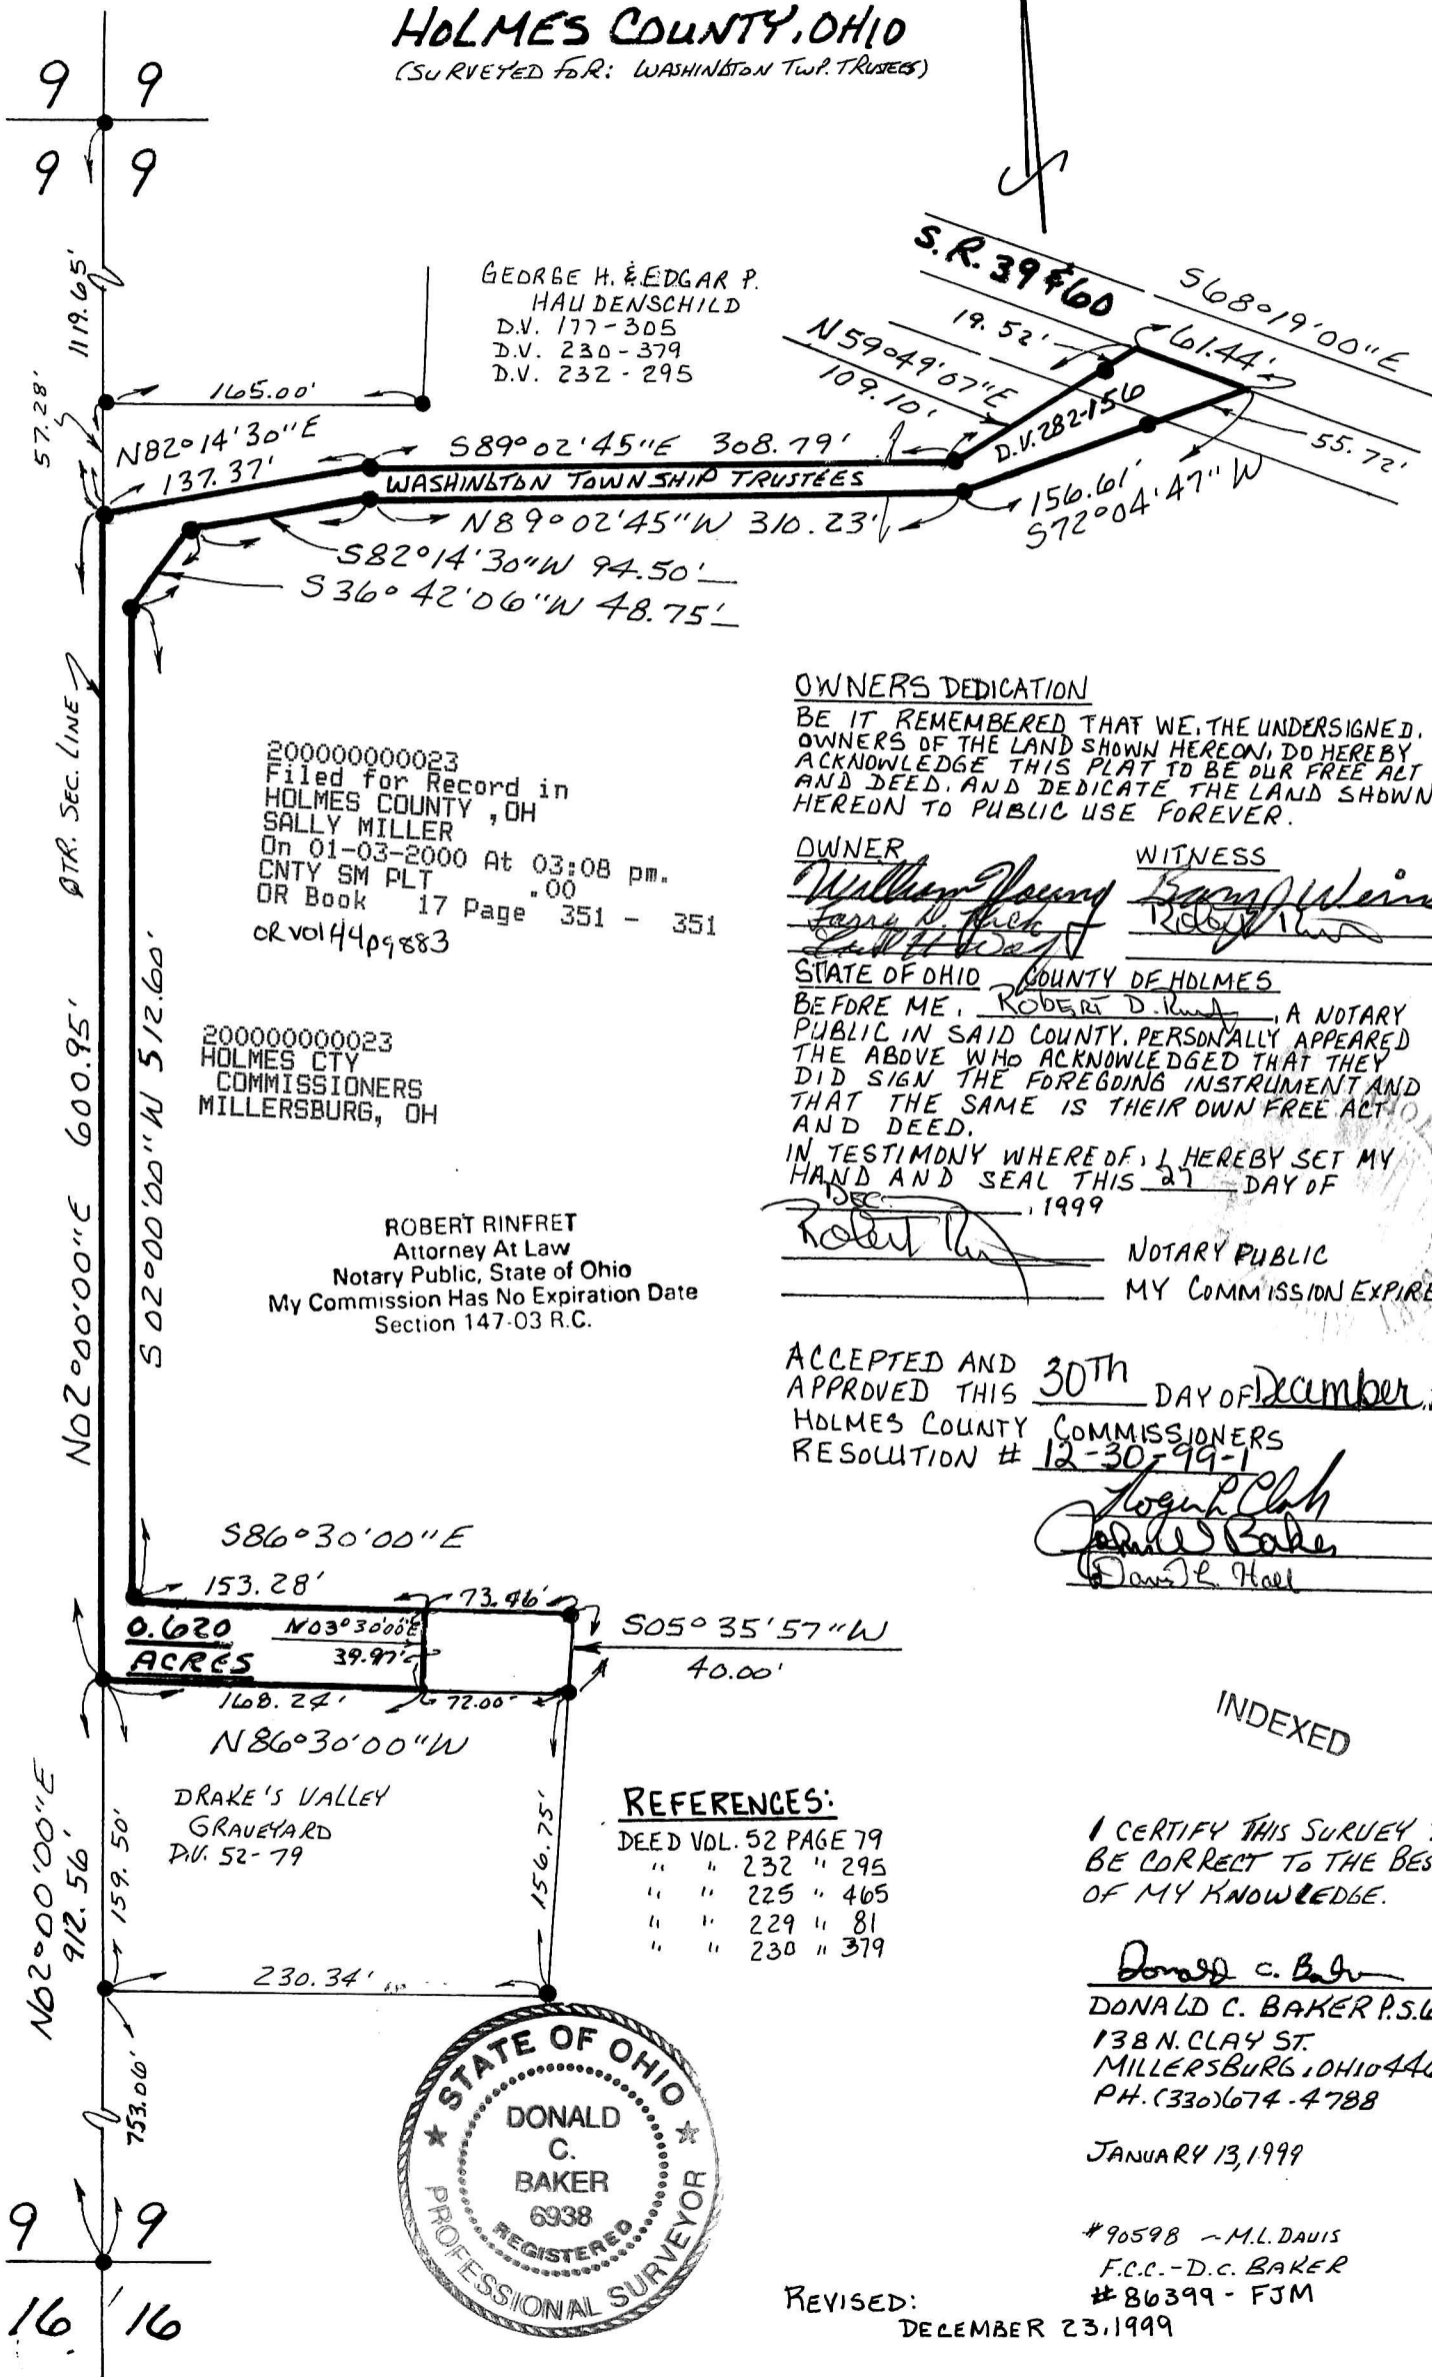 HOLMES COUNTY, OHIO
(SURVEYED FOR: WASHINGTON TWP. TRUSTEES)
9 9
9 9
119.65'
57.28'
GEORGE H. & EDGAR P.
HAUDENSCHILD
D.V. 177-305
D.V. 230-379
D.V. 232-295
S.R. 39 & 60
S68°19'00"E
19.52'
61.44'
N59°49'07"E
109.10'
D.V. 282-156
55.72'
165.00'
N82°14'30"E
137.37'
S89°02'45"E 308.79'
WASHINGTON TOWNSHIP TRUSTEES
N89°02'45"W 310.23'
156.61'
S72°04'47"W
S82°14'30"W 94.50'
S36°42'06"W 48.75'
QTR. SEC. LINE
N02°00'00"E 600.95'
S02°00'00"W 512.60'
200000000023
Filed for Record in
HOLMES COUNTY , OH
SALLY MILLER
On 01-03-2000 At 03:08 pm.
CNTY SM PLT .00
OR Book 17 Page 351 - 351
OR Vol 44 pg 883
200000000023
HOLMES CTY
COMMISSIONERS
MILLERSBURG, OH
ROBERT RINFRET
Attorney At Law
Notary Public, State of Ohio
My Commission Has No Expiration Date
Section 147-03 R.C.
OWNERS DEDICATION
BE IT REMEMBERED THAT WE, THE UNDERSIGNED,
OWNERS OF THE LAND SHOWN HEREON, DO HEREBY
ACKNOWLEDGE THIS PLAT TO BE OUR FREE ACT
AND DEED, AND DEDICATE THE LAND SHOWN
HEREON TO PUBLIC USE FOREVER.
OWNER WITNESS
William Young
STATE OF OHIO COUNTY OF HOLMES
BEFORE ME, ROBERT D. , A NOTARY
PUBLIC IN SAID COUNTY, PERSONALLY APPEARED
THE ABOVE WHO ACKNOWLEDGED THAT THEY
DID SIGN THE FOREGOING INSTRUMENT AND
THAT THE SAME IS THEIR OWN FREE ACT
AND DEED.
IN TESTIMONY WHEREOF, I HEREBY SET MY
HAND AND SEAL THIS 27 DAY OF
DEC. , 1999
Robert
NOTARY PUBLIC
MY COMMISSION EXPIRE
ACCEPTED AND
APPROVED THIS 30Th DAY OF December,
HOLMES COUNTY COMMISSIONERS
RESOLUTION # 12-30-99-1
Roger L Clark
John W Baker
David L. Hall
S86°30'00"E
153.28'
73.46'
S05°35'57"W
40.00'
0.620
ACRES
N03°30'00"E
39.97'
168.24'
72.00'
N86°30'00"W
DRAKE'S VALLEY
GRAVEYARD
D.V. 52-79
N02°00'00"E
912.56'
159.50'
156.75'
230.34'
753.06'
REFERENCES:
DEED VOL. 52 PAGE 79
" " 232 " 295
" " 225 " 465
" " 229 " 81
" " 230 " 379
INDEXED
I CERTIFY THIS SURVEY
BE CORRECT TO THE BES
OF MY KNOWLEDGE.
Donald C. Baker
DONALD C. BAKER P.S.6
138 N. CLAY ST.
MILLERSBURG, OHIO 446
PH. (330) 674-4788
JANUARY 13, 1999
#90598 - M.L. DAVIS
F.C.C. - D.C. BAKER
#86399 - FJM
REVISED:
DECEMBER 23, 1999
STATE OF OHIO
DONALD
C.
BAKER
6938
REGISTERED
PROFESSIONAL SURVEYOR
9 9
16 16